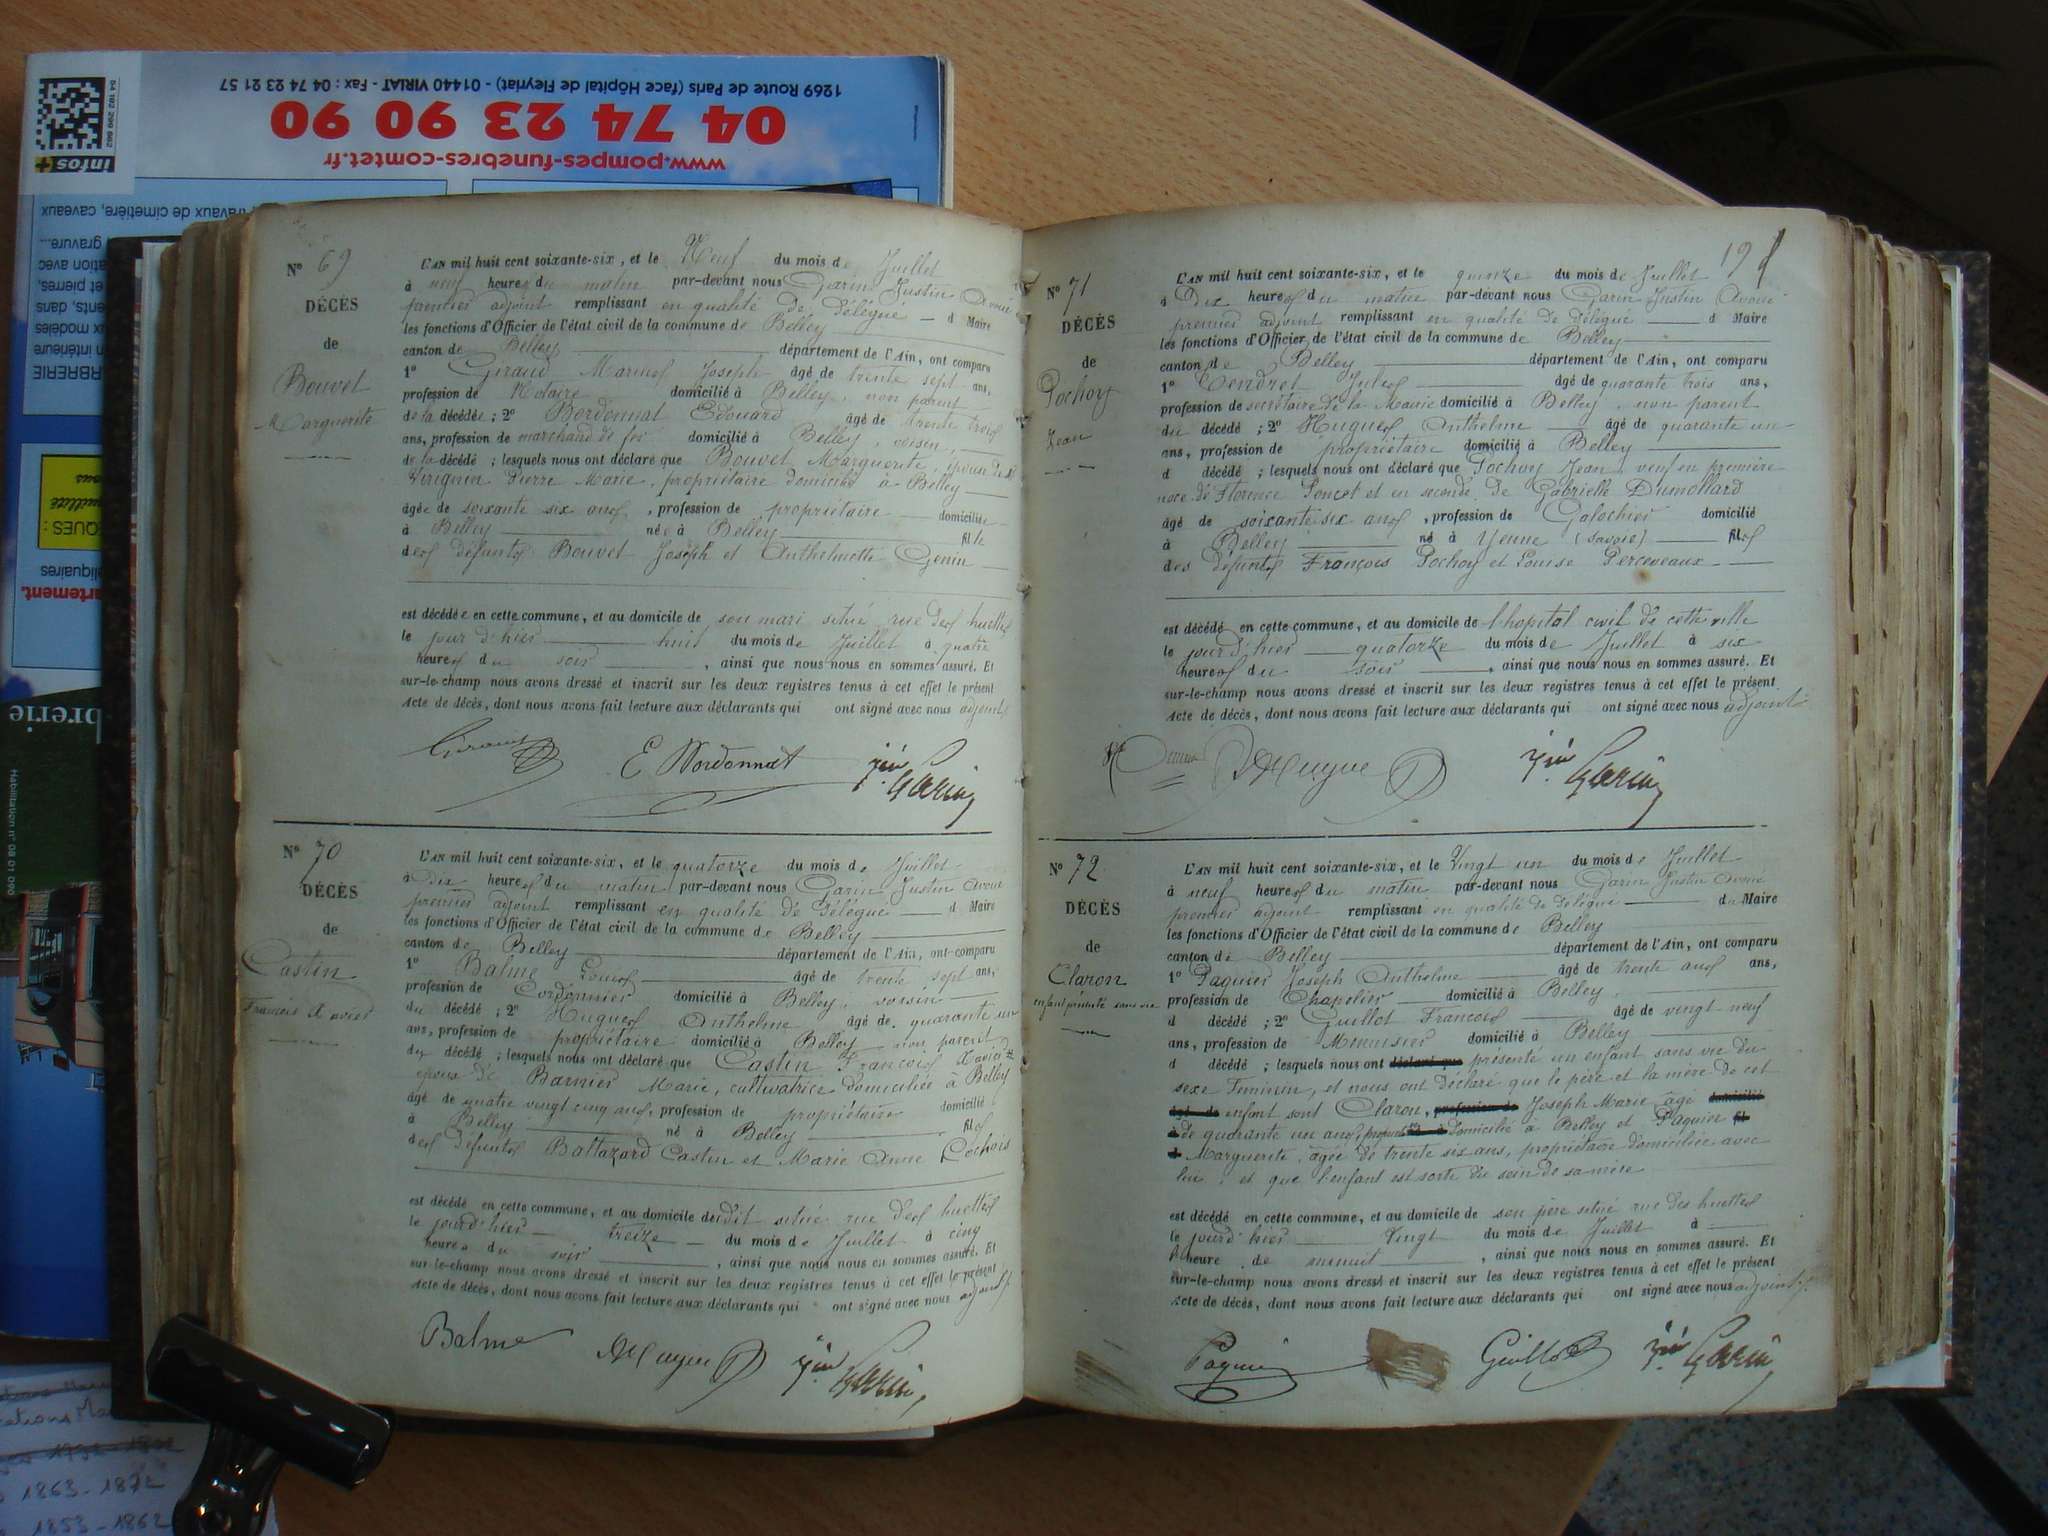 1269 Route de Paris (face Hôpital de Fleyriat) - 01440 VIRIAT - Fax : 04 74 23 21 57
04 74 23 90 90
www.pompes-funebres-comtet.fr
Infos+
travaux de cimetière, caveaux
gravure...
N° 69
DÉCÈS
de
Bouvet
Marguerite
L'AN mil huit cent soixante-six, et le Neuf du mois de Juillet
à neuf heures du matin par-devant nous Garin Justin Avoué
premier adjoint remplissant en qualité de Délégué d Maire
les fonctions d'Officier de l'état civil de la commune de Belley
canton de Belley département de l'Ain, ont comparu
1° Giraud Marius Joseph âgé de trente sept ans,
profession de Notaire domicilié à Belley, non parent
de la décédée ; 2° Bordonnat Edouard âgé de trente trois
ans, profession de marchand de fer domicilié à Belley, voisin
de la décédé ; lesquels nous ont déclaré que Bouvet Marguerite, épouse de
Pierre Marie, propriétaire domicilié à Belley
âgée de soixante six ans, profession de propriétaire domiciliée
à Belley née à Belley fille
des défunts Bouvet Joseph et Anthelmette Genin
est décédée en cette commune, et au domicile de son mari situé rue des huettes
le jour d'hier huit du mois de Juillet à quatre
heures du soir, ainsi que nous nous en sommes assuré. Et
sur-le-champ nous avons dressé et inscrit sur les deux registres tenus à cet effet le présent
Acte de décès, dont nous avons fait lecture aux déclarants qui ont signé avec nous adjoint
Giraud E Bordonnat Jin Garin
N° 70
DÉCÈS
de
Castin
Francois Xavier
L'AN mil huit cent soixante-six, et le quatorze du mois de Juillet
à Dix heures du matin par-devant nous Garin Justin Avoué
premier adjoint remplissant en qualité de Délégué d Maire
les fonctions d'Officier de l'état civil de la commune de Belley
canton de Belley département de l'Ain, ont comparu
1° Balme Louis âgé de trente sept ans,
profession de Cordonnier domicilié à Belley, voisin
du décédé ; 2° Hugues Anthelme âgé de quarante un
ans, profession de propriétaire domicilié à Belley non parent
du décédé ; lesquels nous ont déclaré que Castin François Xavier
époux de Barnier Marie, cultivatrice domiciliée à Belley
âgé de quatre vingt cinq ans, profession de propriétaire domicilié
à Belley né à Belley fils
des défunts Baltazard Castin et Marie Anne Cochois
est décédé en cette commune, et au domicile dudit situé rue des huettes
le jourd'hier treize du mois de Juillet à cinq
heures du soir, ainsi que nous nous en sommes assuré. Et
sur-le-champ nous avons dressé et inscrit sur les deux registres tenus à cet effet le présent
Acte de décès, dont nous avons fait lecture aux déclarants qui ont signé avec nous adjoint
Balme AHugues Jin Garin
19
N° 71
DÉCÈS
de
Pochoy
Jean
L'AN mil huit cent soixante-six, et le quinze du mois de Juillet
à Dix heures du matin par-devant nous Garin Justin Avoué
premier adjoint remplissant en qualité de Délégué d Maire
les fonctions d'Officier de l'état civil de la commune de Belley
canton de Belley département de l'Ain, ont comparu
1° Tendret Jules âgé de quarante trois ans,
profession de secrétaire de la Mairie domicilié à Belley, non parent
du décédé ; 2° Hugues Anthelme âgé de quarante un
ans, profession de propriétaire domicilié à Belley
d décédé ; lesquels nous ont déclaré que Pochoy Jean, veuf en première
noce de Florence Poncet et en seconde de Gabrielle Dumollard
âgé de soixante six ans, profession de Galochier domicilié
à Belley né à Yenne (Savoie) fils
des défunts François Pochoy et Louise Perceveaux
est décédé en cette commune, et au domicile de l'hopital civil de cette ville
le jourd'hier quatorze du mois de Juillet à six
heures du soir, ainsi que nous nous en sommes assuré. Et
sur-le-champ nous avons dressé et inscrit sur les deux registres tenus à cet effet le présent
Acte de décès, dont nous avons fait lecture aux déclarants qui ont signé avec nous adjoint
AHugues Jin Garin
N° 72
DÉCÈS
de
Claron
enfant présenté sans vie
L'AN mil huit cent soixante-six, et le Vingt un du mois de Juillet
à neuf heures du matin par-devant nous Garin Justin Avoué
premier adjoint remplissant en qualité de Délégué du Maire
les fonctions d'Officier de l'état civil de la commune de Belley
canton de Belley département de l'Ain, ont comparu
1° Paquier Joseph Anthelme âgé de trente ans ans,
profession de Chapelier domicilié à Belley,
d décédé ; 2° Guillot François âgé de vingt neuf
ans, profession de Menuisier domicilié à Belley
d décédé ; lesquels nous ont déclaré que présenté un enfant sans vie du
sexe Feminin, et nous ont déclaré que le père et la mère de cet
âgé de enfant sont Claron, profession de Joseph Marie âgé domicilié
à de quarante un ans, domicilié à Belley et Paquier fil
d Marguerite, agée de trente six ans, propriétaire domiciliée avec
lui, et que l'enfant est sorti du sein de sa mère
est décédé en cette commune, et au domicile de son père situé rue des huettes
le jourd'hier Vingt du mois de Juillet à
l'heure de minuit, ainsi que nous nous en sommes assuré. Et
sur-le-champ nous avons dressé et inscrit sur les deux registres tenus à cet effet le présent
Acte de décès, dont nous avons fait lecture aux déclarants qui ont signé avec nous adjoint
Paquier Guillot Jin Garin
Habilitation n° 08 01 090
1863-1872
1853-1862